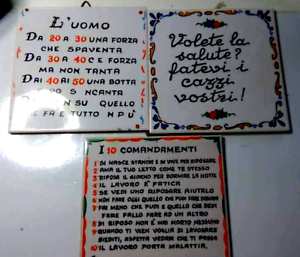 L'UOMO
DA 20 A 30 UNA FORZA
CHE SPAVENTA
DA 30 A 40 C'E FORZA
MA NON TANTA
DAI 40 AI 50 UNA BOTTA
SU QUELLO
E FA E TUTTO N PÙ
Volete la
salute?
fatevi i
cazzi
vostri!
I 10 COMANDAMENTI
1 SI NASCE STANCHI E SI VIVE PER RIPOSARE
2 AMA IL TUO LETTO COME TE STESSO
3 RIPOSA IL GIORNO PER DORMIRE LA NOTTE
4 IL LAVORO È FATICA
5 SE VEDI UNO RIPOSARE AIUTALO
6 NON FARE OGGI QUELLO CHE PUOI FARE DOMANI
7 FAI MENO CHE PUOI E QUELLO CHE DEVI
FARE FALLO FARE AD UN ALTRO
8 DI RIPOSO NON È MAI MORTO NESSUNO
9 QUANDO TI VIEN VOGLIA DI LAVORARE
SIEDITI, ASPETTA CHE TI PASSA
10 IL LAVORO PORTA MALATTIA,